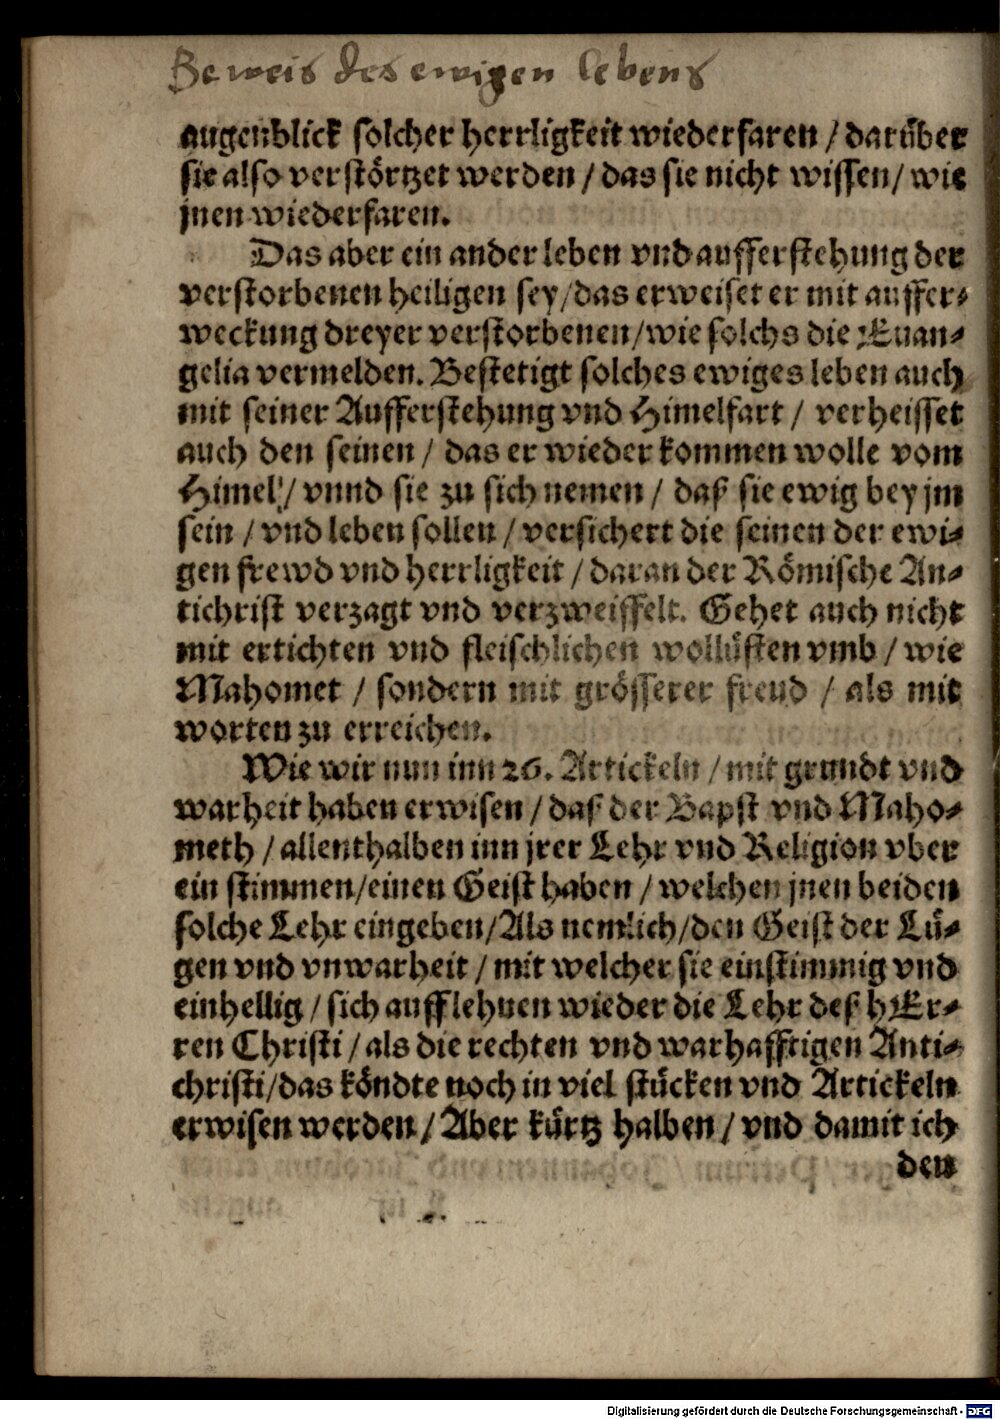 Beweis des ewigen lebens
augenblick solcher herrligkeit wiederfaren / darüber
sie also verstörtzet werden / das sie nicht wissen / wie
jnen wiederfaren.
Das aber ein ander leben vnd aufferstehung der
verstorbenen heiligen sey / das erweiset er mit auffer-
weckung dreyer verstorbenen / wie solchs die Euan-
gelia vermelden. Bestetigt solches ewiges leben auch
mit seiner Aufferstehung vnd Himelfart / verheisset
auch den seinen / das er wieder kommen wolle vom
Himel / vnnd sie zu sich nemen / daß sie ewig bey jm
sein / vnd leben sollen / versichert die seinen der ewi-
gen frewd vnd herrligkeit / daran der Römische An-
tichrist verzagt vnd verzweiffelt. Gehet auch nicht
mit ertichten vnd fleischlichen wollüsten vmb / wie
Mahomet / sondern mit grösserer freud / als mit
worten zu erreichen.
Wie wir nun inn 26. Artickeln / mit grundt vnd
warheit haben erwisen / daß der Bapst vnd Maho-
meth / allenthalben inn jrer Lehr vnd Religion vber
ein stimmen / einen Geist haben / welchen jnen beiden
solche Lehr eingeben / Als nemlich / den Geist der Lü-
gen vnd vnwarheit / mit welcher sie einstimmig vnd
einhellig / sich aufflehnen wieder die Lehr deß HEr-
ren Christi / als die rechten vnd warhafftigen Anti-
christi / das köndte noch in viel stücken vnd Artickeln
erwisen werden / Aber kürtz halben / vnd damit ich
den
Digitalisierung gefördert durch die Deutsche Forschungsgemeinschaft - DFG